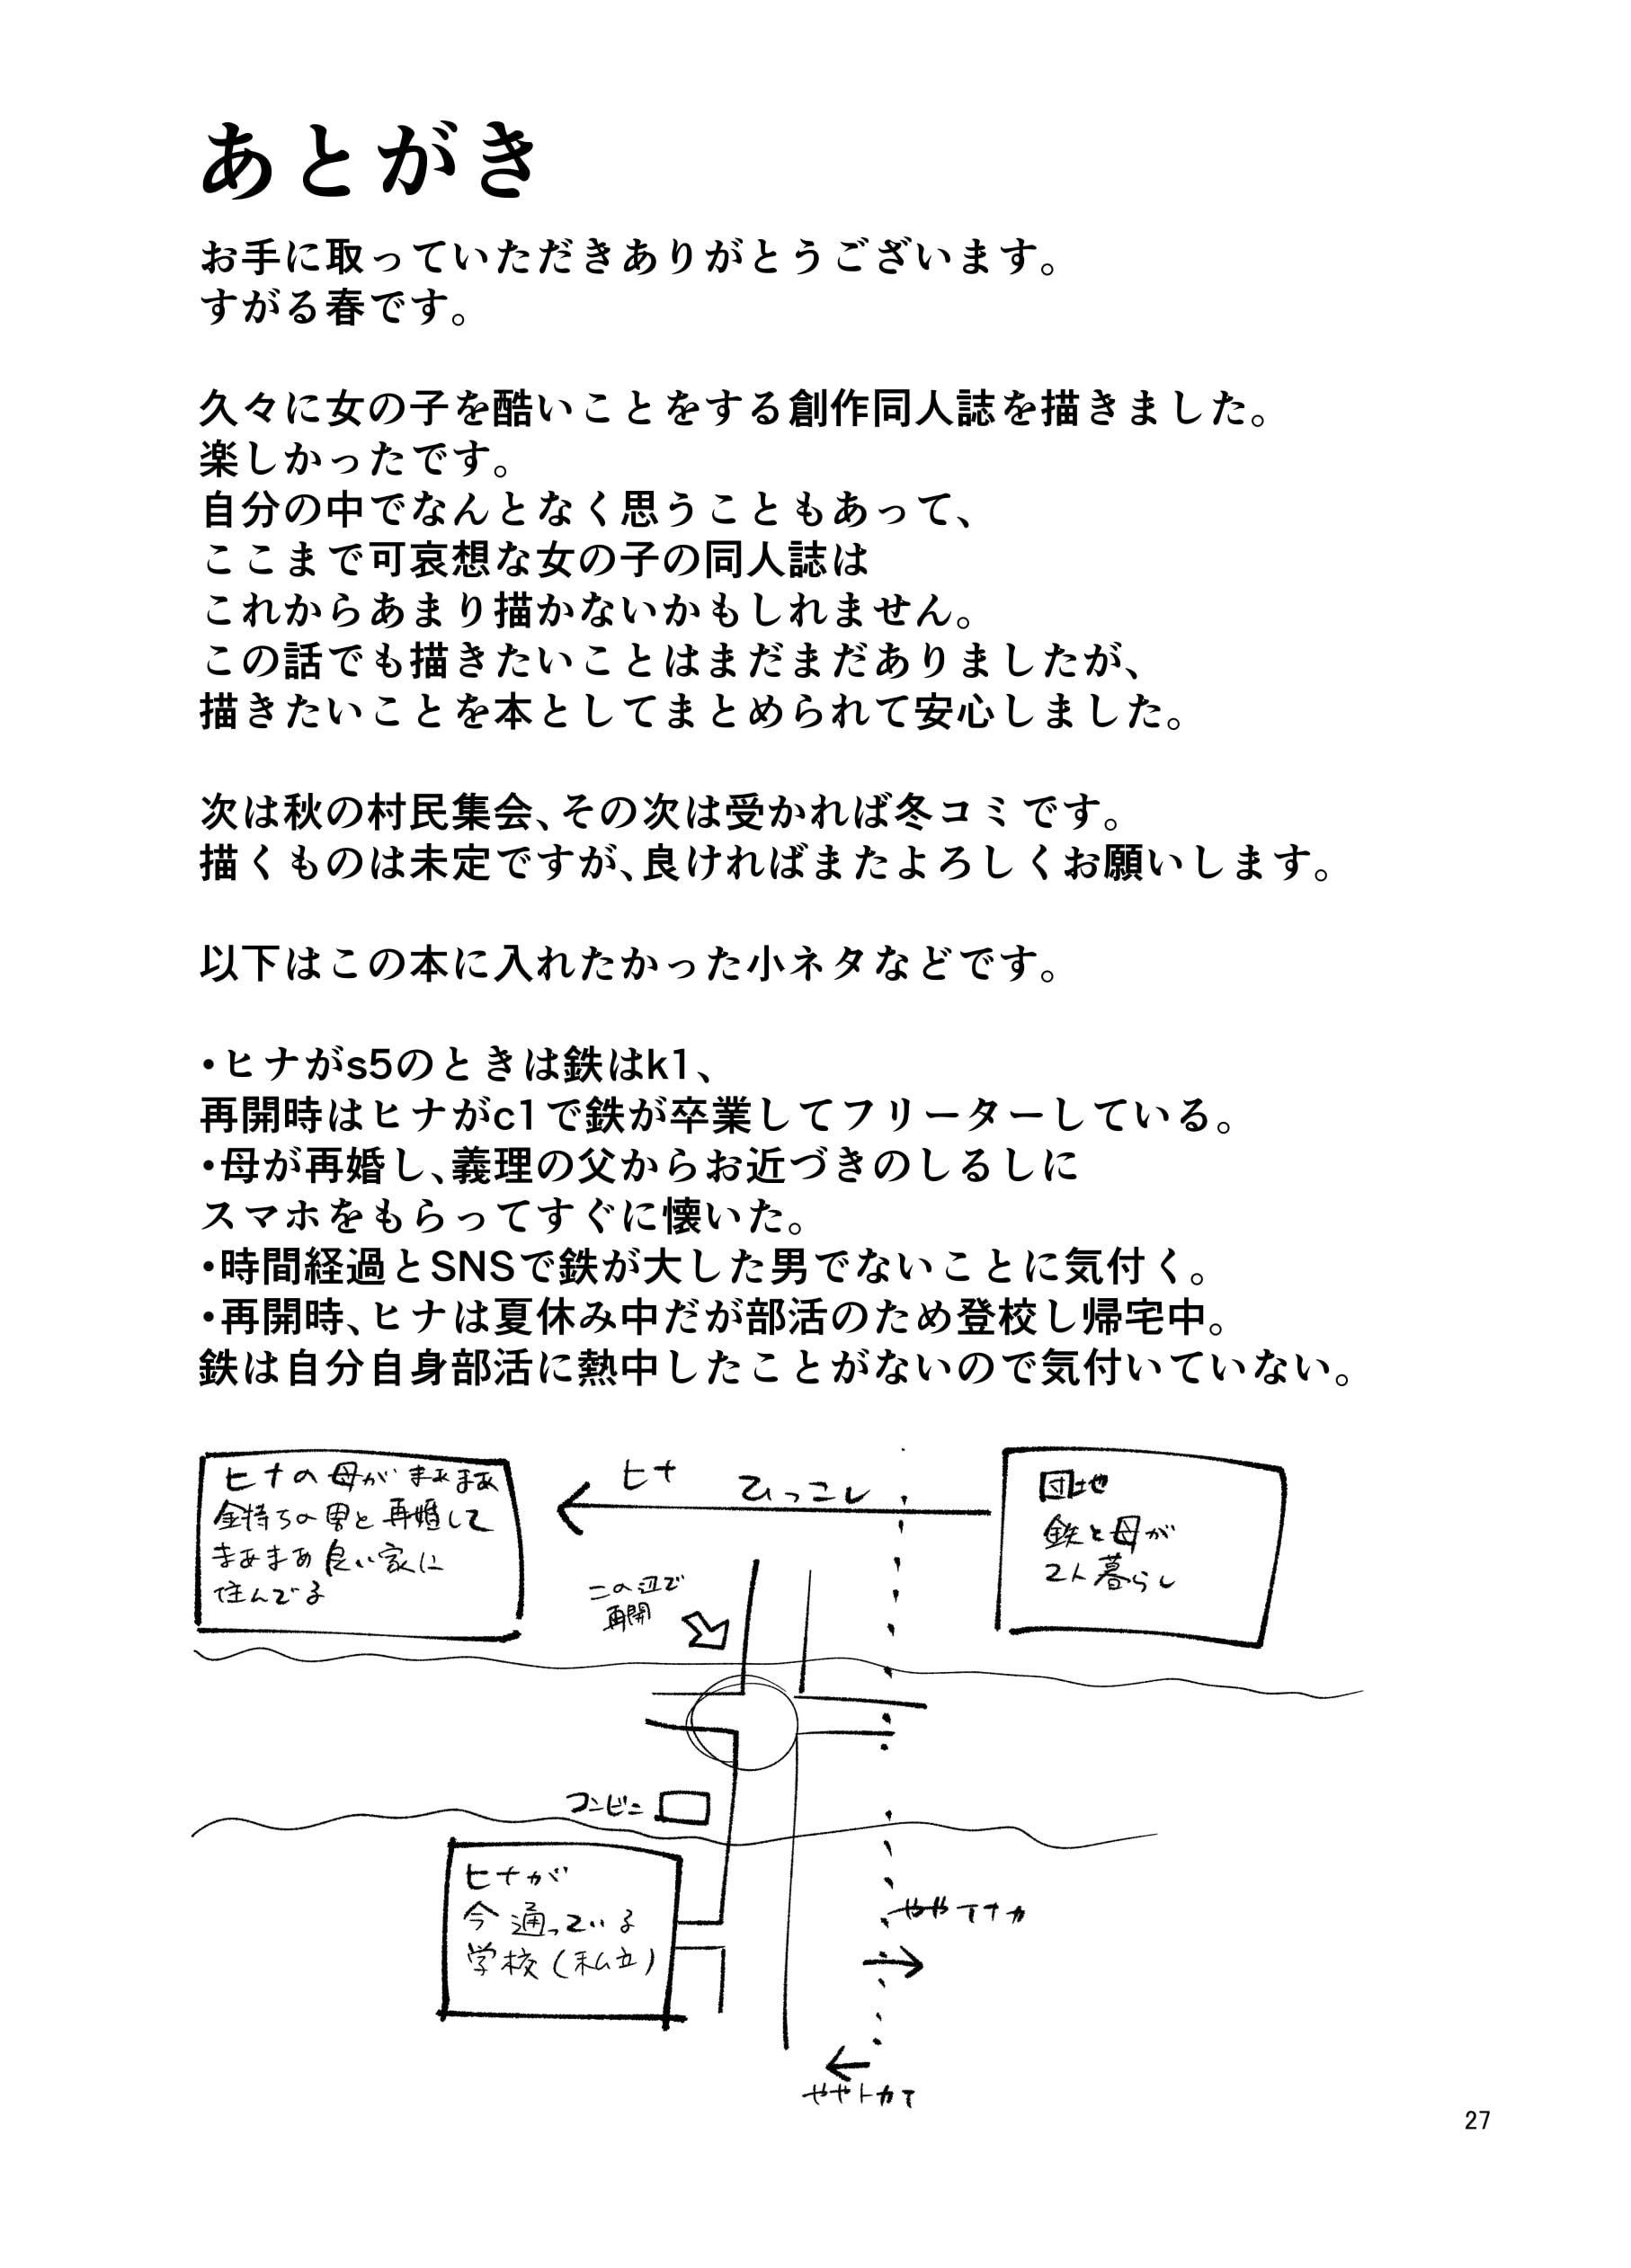 あとがき
お手に取っていただきありがとうございます。
すがる春です。
久々に女の子を酷いことをする創作同人誌を描きました。
楽しかったです。
自分の中でなんとなく思うこともあって、
ここまで可哀想な女の子の同人誌は
これからあまり描かないかもしれません。
この話でも描きたいことはまだまだありましたが、
描きたいことを本としてまとめられて安心しました。
次は秋の村民集会、その次は受かれば冬コミです。
描くものは未定ですが、良ければまたよろしくお願いします。
以下はこの本に入れたかった小ネタなどです。
・ヒナがs5のときは鉄はk1、
再開時はヒナがc1で鉄が卒業してフリーターしている。
・母が再婚し、義理の父からお近づきのしるしに
スマホをもらってすぐに懐いた。
・時間経過とSNSで鉄が大した男でないことに気付く。
・再開時、ヒナは夏休み中だが部活のため登校し帰宅中。
鉄は自分自身部活に熱中したことがないので気付いていない。
ヒナの母がまぁまぁ
金持ちの男と再婚して
まあまあ良い家に
住んでる
ヒナ ひっこし
団地
鉄と母が
2人暮らし
この辺で
再開
コンビニ
ヒナが
今通っている
学校(私立)
ややイナカ
ややトカイ
27